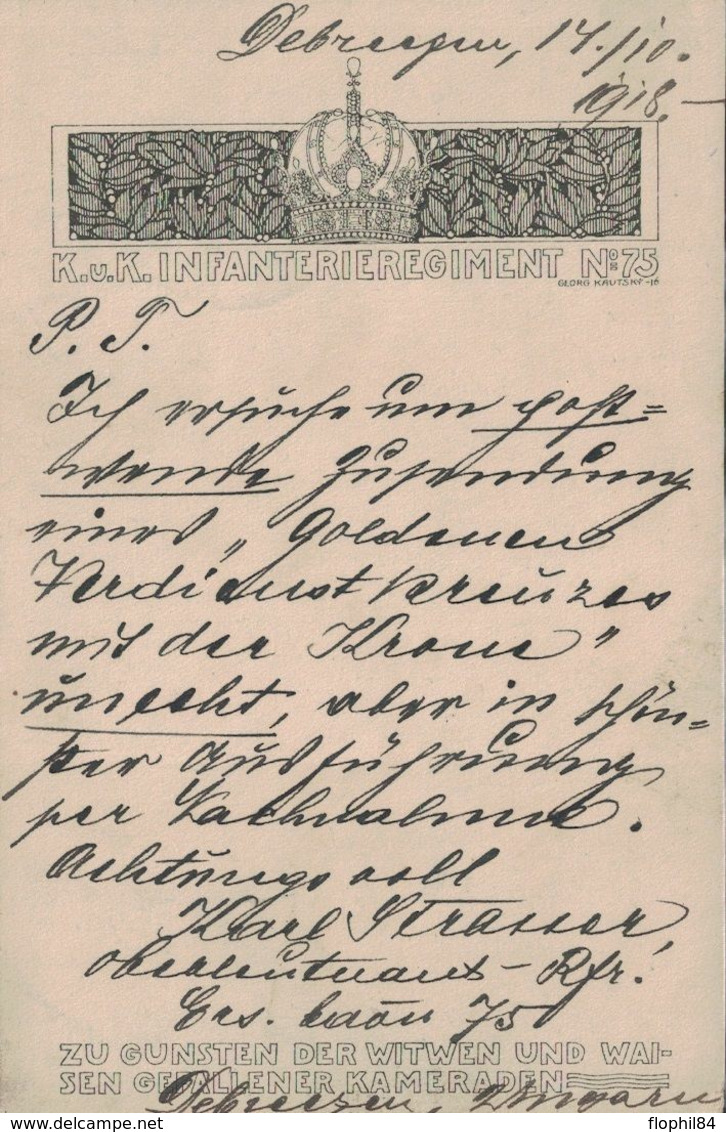 Debreczen, 14./10.
1918.–
K.u.K. INFANTERIEREGIMENT No. 75
GEORG KAUTSKY -16
P. T.
Ich ersuche um post=
wende Zusendung
eines „Goldenen
Verdienstkreuzes
mit der Krone"
unecht, aber in schön=
ster Ausführung
per Nachnahme.
Achtungsvoll
Karl Strasser,
Oberleutnant – Rfr.
Ers. baõn 75
ZU GUNSTEN DER WITWEN UND WAI-
SEN GEFALLENER KAMERADEN
Debreczen, Ungarn
delcampe.net
flophil84